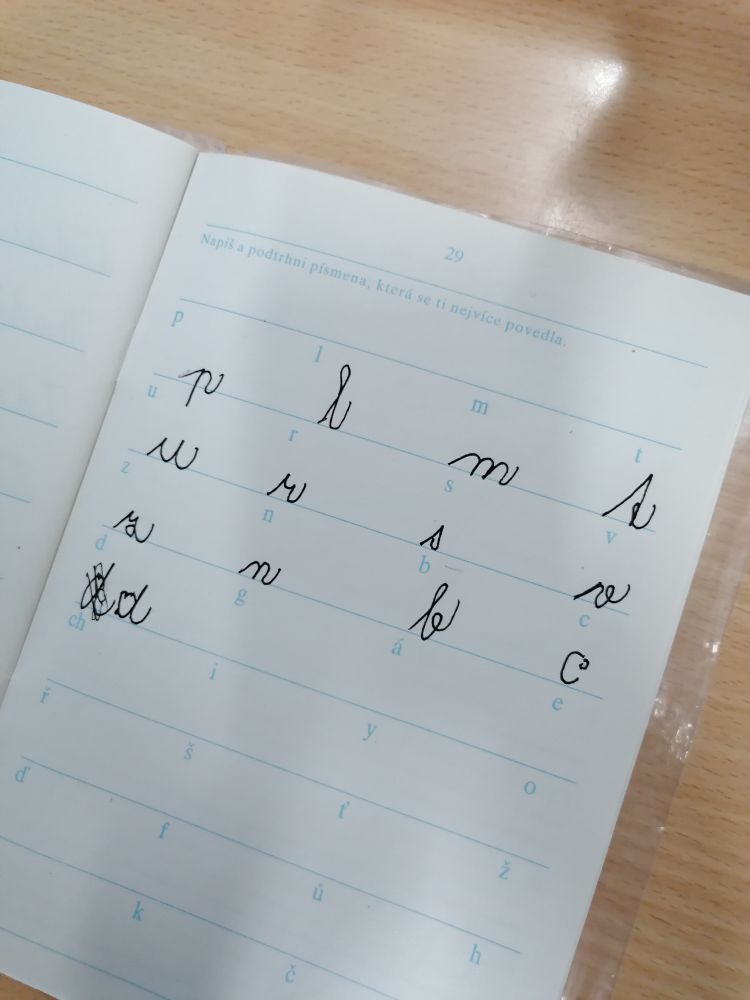 29
Napiš a podtrhni písmena, která se ti nejvíce povedla.
p l m t
p l m t
u r s v
u r s v
z n b c
z n b c
d g á e
d
ch i y o
ř š ť ž
ď f ů h
k č